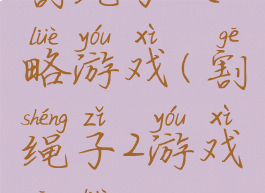 lüè yóu xì gē
略游戏(割
shéng zǐ yóu xì
绳子2游戏